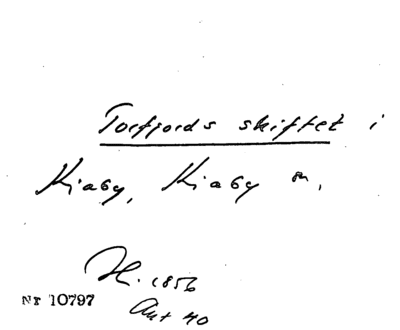 Torfjords skiftet i
Kiaby, Kiaby sn,
H. 1856
Nr 10797
Ant 40